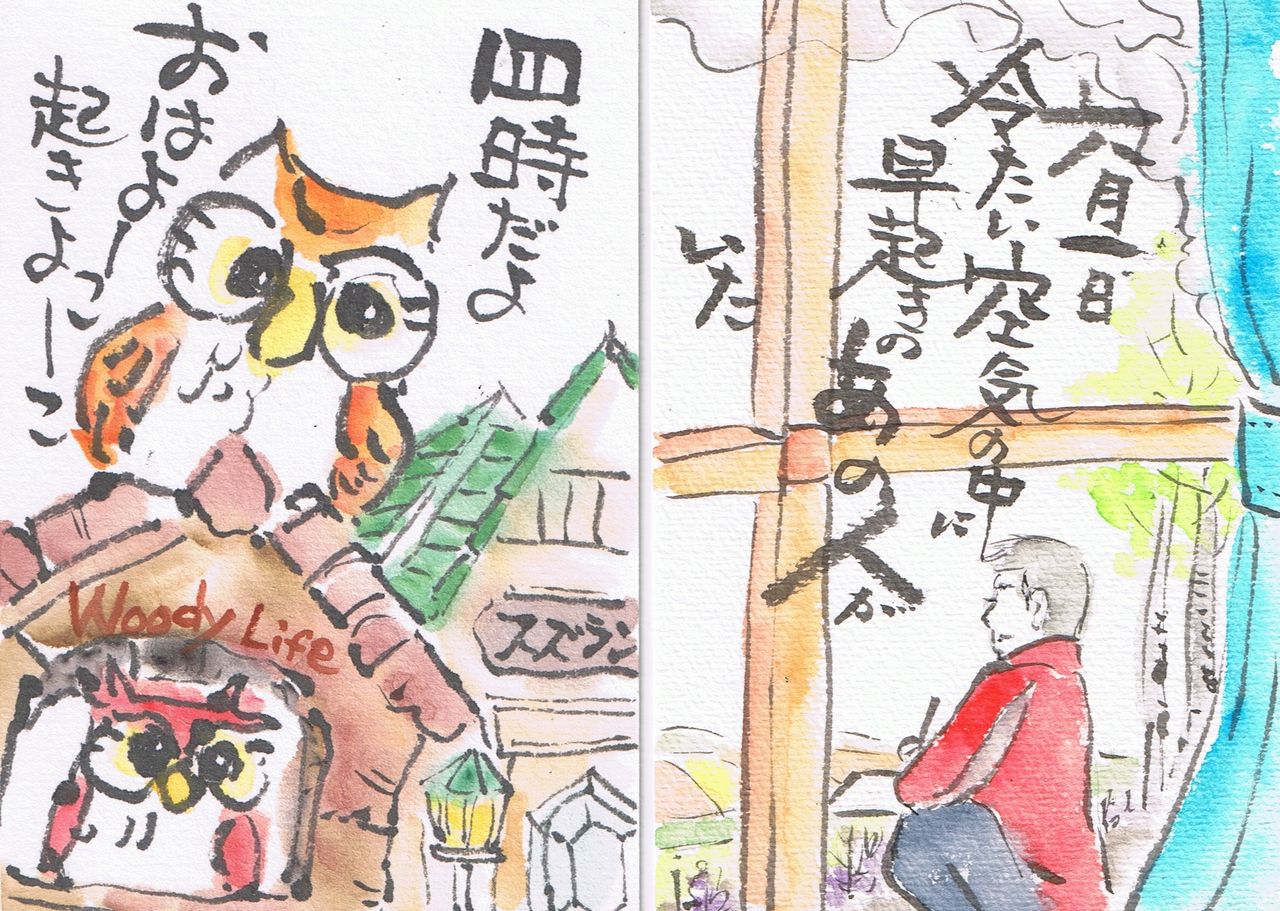 四時だよ
おはよー
起きよ
こーこ
Woody Life
スズラン
六月一日
冷たい空気の中に
早起きのあの人が
いた